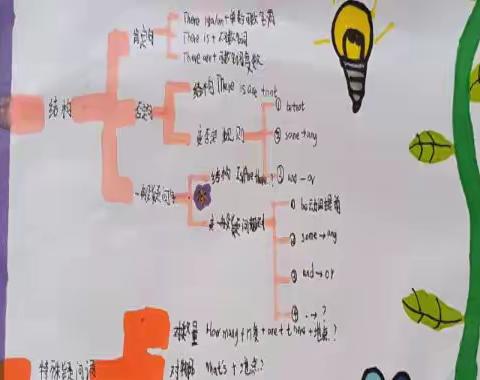 结构
肯定句
There is/am+单数可数名词
There is+不可数名词
There are+可数名词复数
否定句
结构 There is are+not
变否定 规则
① be+not
② some→any
③ and→or
一般疑问句
结构 Is/Are there..?
变一般疑问句规则
① be动词提前
② some→any
③ and→or
④ .→?
特殊疑问词
对数量 How many+n复+are+there+地点?
对物 What's+地点?